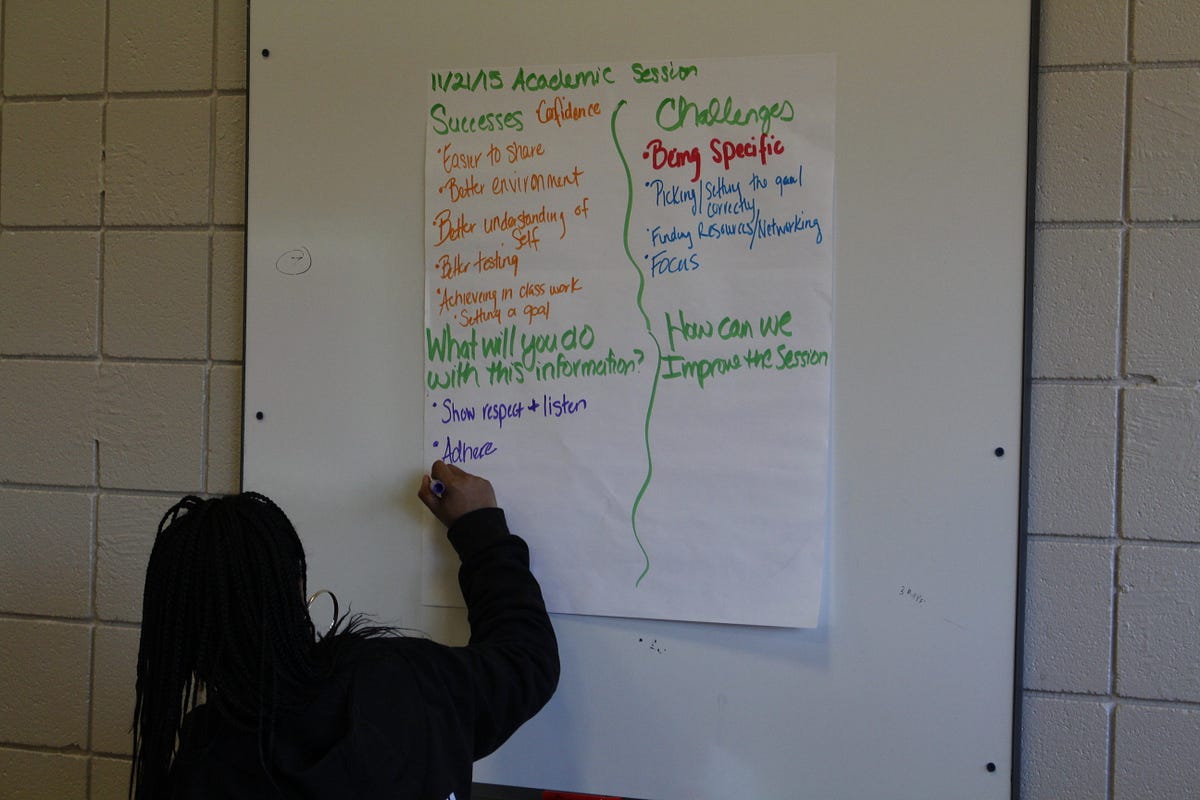 11/21/15 Academic Session
Successes Confidence
• Easier to share
• Better environment
• Better understanding of
Self
• Better testing
• Achieveing in class work
• Setting a goal
Challenges
• Being Specific
• Picking/Setting the goal
correctly
• Funding Resources/Networking
• Focus
What will you do
with this information?
• Show respect + listen
• Adhere
How can we
Improve the Session